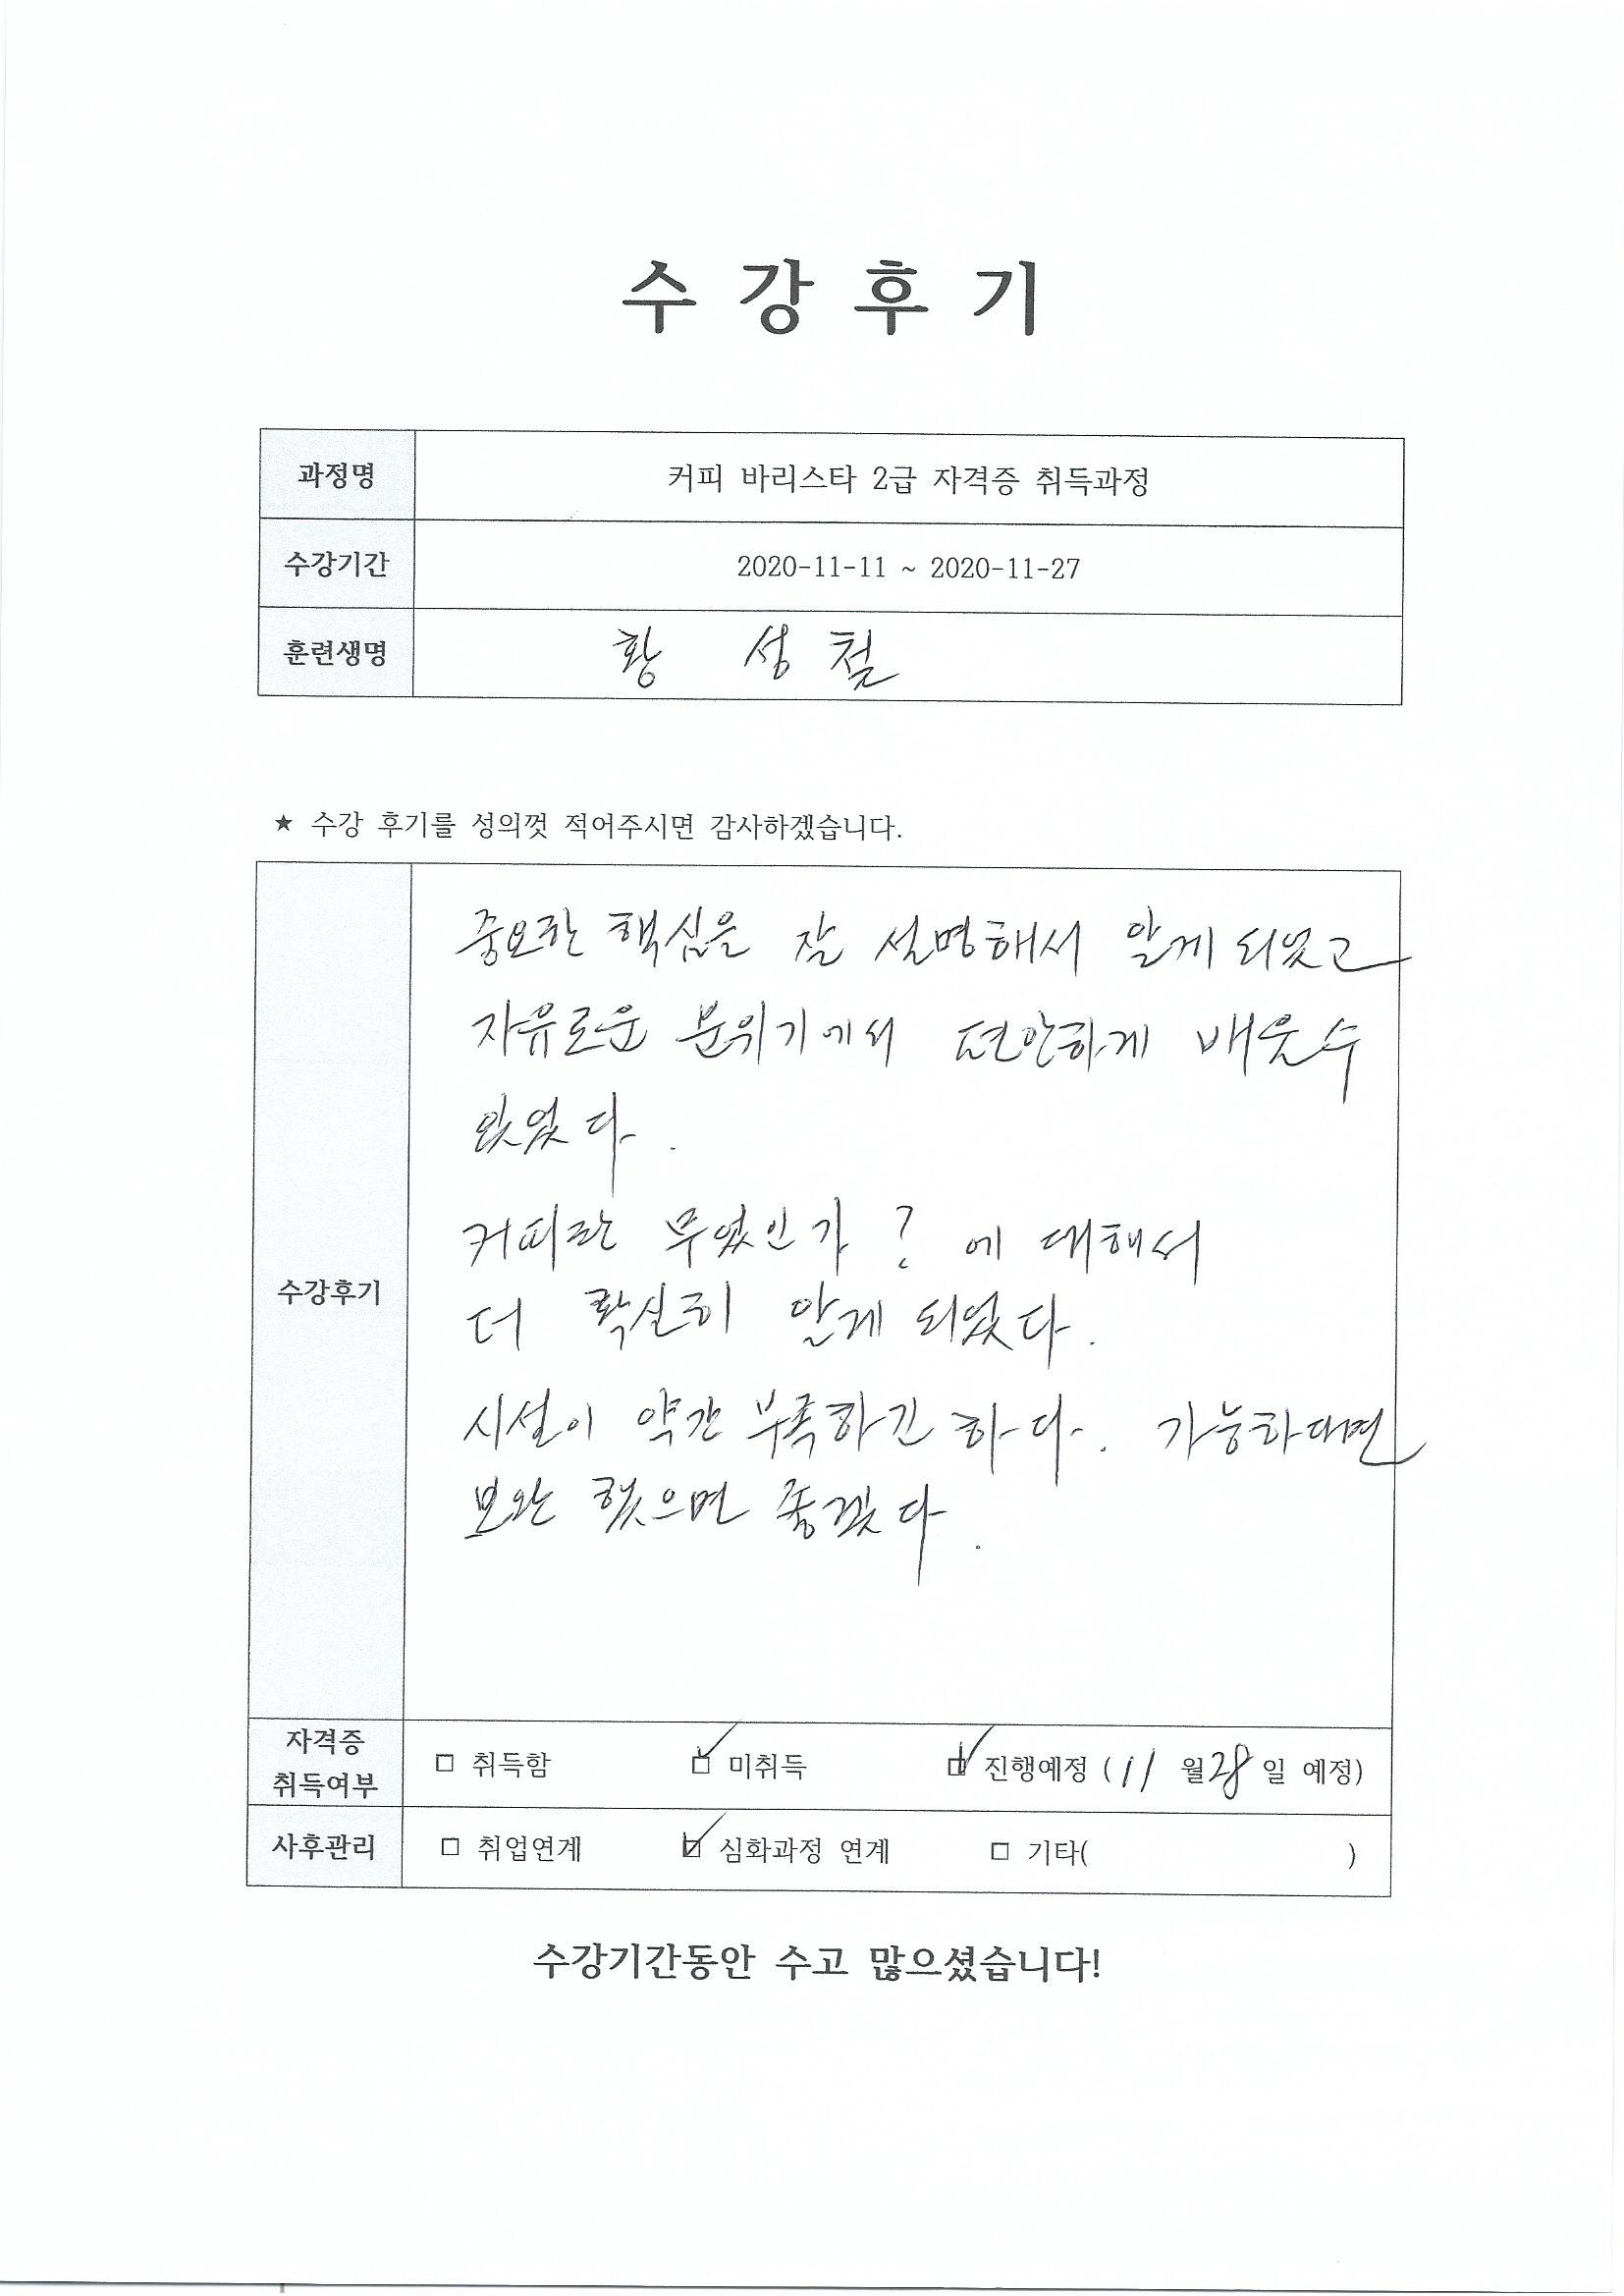 수 강 후 기
과정명 커피 바리스타 2급 자격증 취득과정
수강기간 2020-11-11 ~ 2020-11-27
훈련생명 황 성 철
★ 수강 후기를 성의껏 적어주시면 감사하겠습니다.
중요한 핵심을 잘 설명해서 알게 되었고
자유로운 분위기에서 편안하게 배울수
있었다.
커피란 무엇인가? 에 대해서
수강후기
더 확실히 알게 되었다.
시설이 약간 부족하긴 하다. 가능하다면
보완 했으면 좋겠다.
자격증
취득여부
□ 취득함 ☑ 미취득 ☑ 진행예정 (11 월 28 일 예정)
사후관리 □ 취업연계 ☑ 심화과정 연계 □ 기타( )
수강기간동안 수고 많으셨습니다!